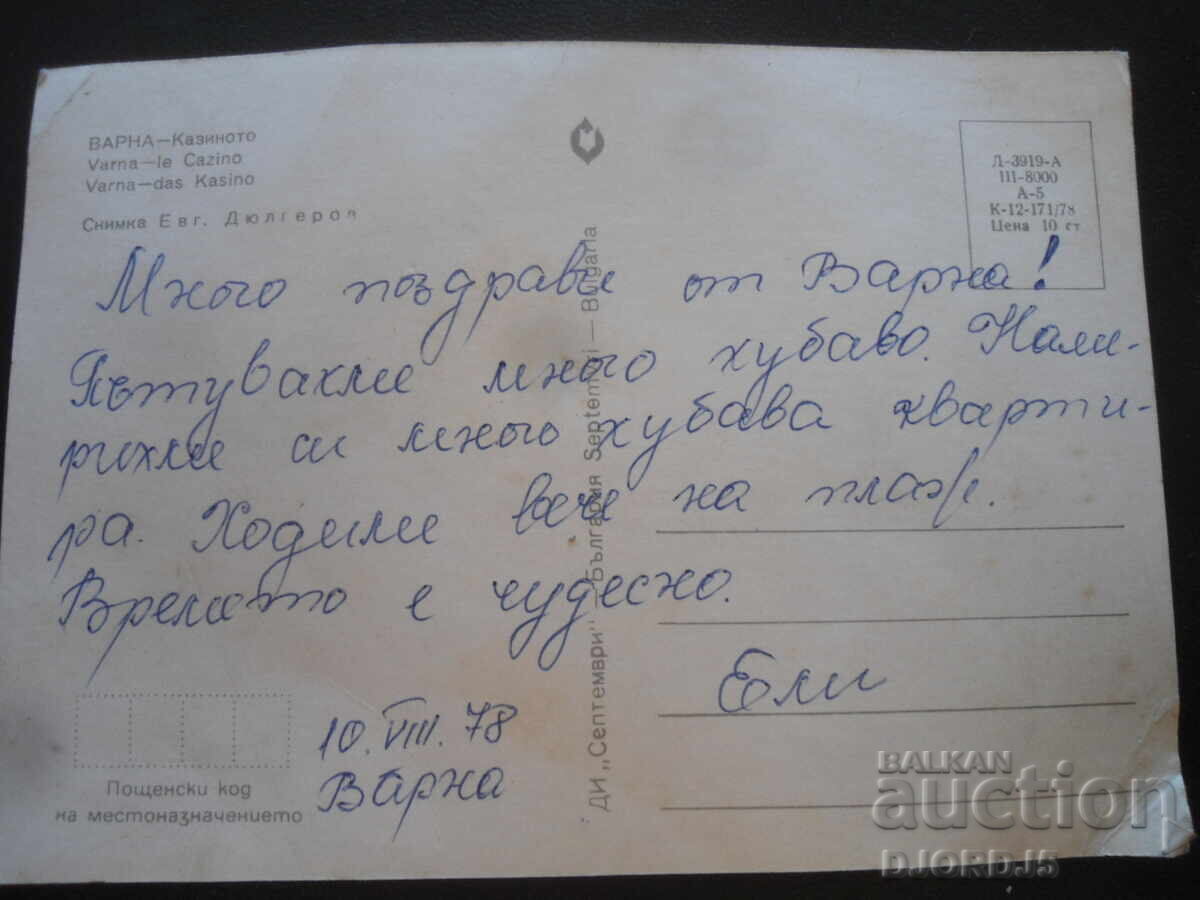 ВАРНА—Казиното
Varna—le Cazino
Varna—das Kasino
Снимка Евг. Дюлгеров
Л-3919-А
III-8000
А-5
К-12-171/78
Цена 10 ст
Много поздрави от Варна!
Пътувахме много хубаво. Нами-
рихме си много хубава кварти-
ра. Ходими вече на плаж.
Времето е чудесно.
Ели
10. VIII. 78
Варна
Пощенски код
на местоназначението
ДИ „Септември" — България Septemvri — Bulgaria
BALKAN
auction
DJORDJ5